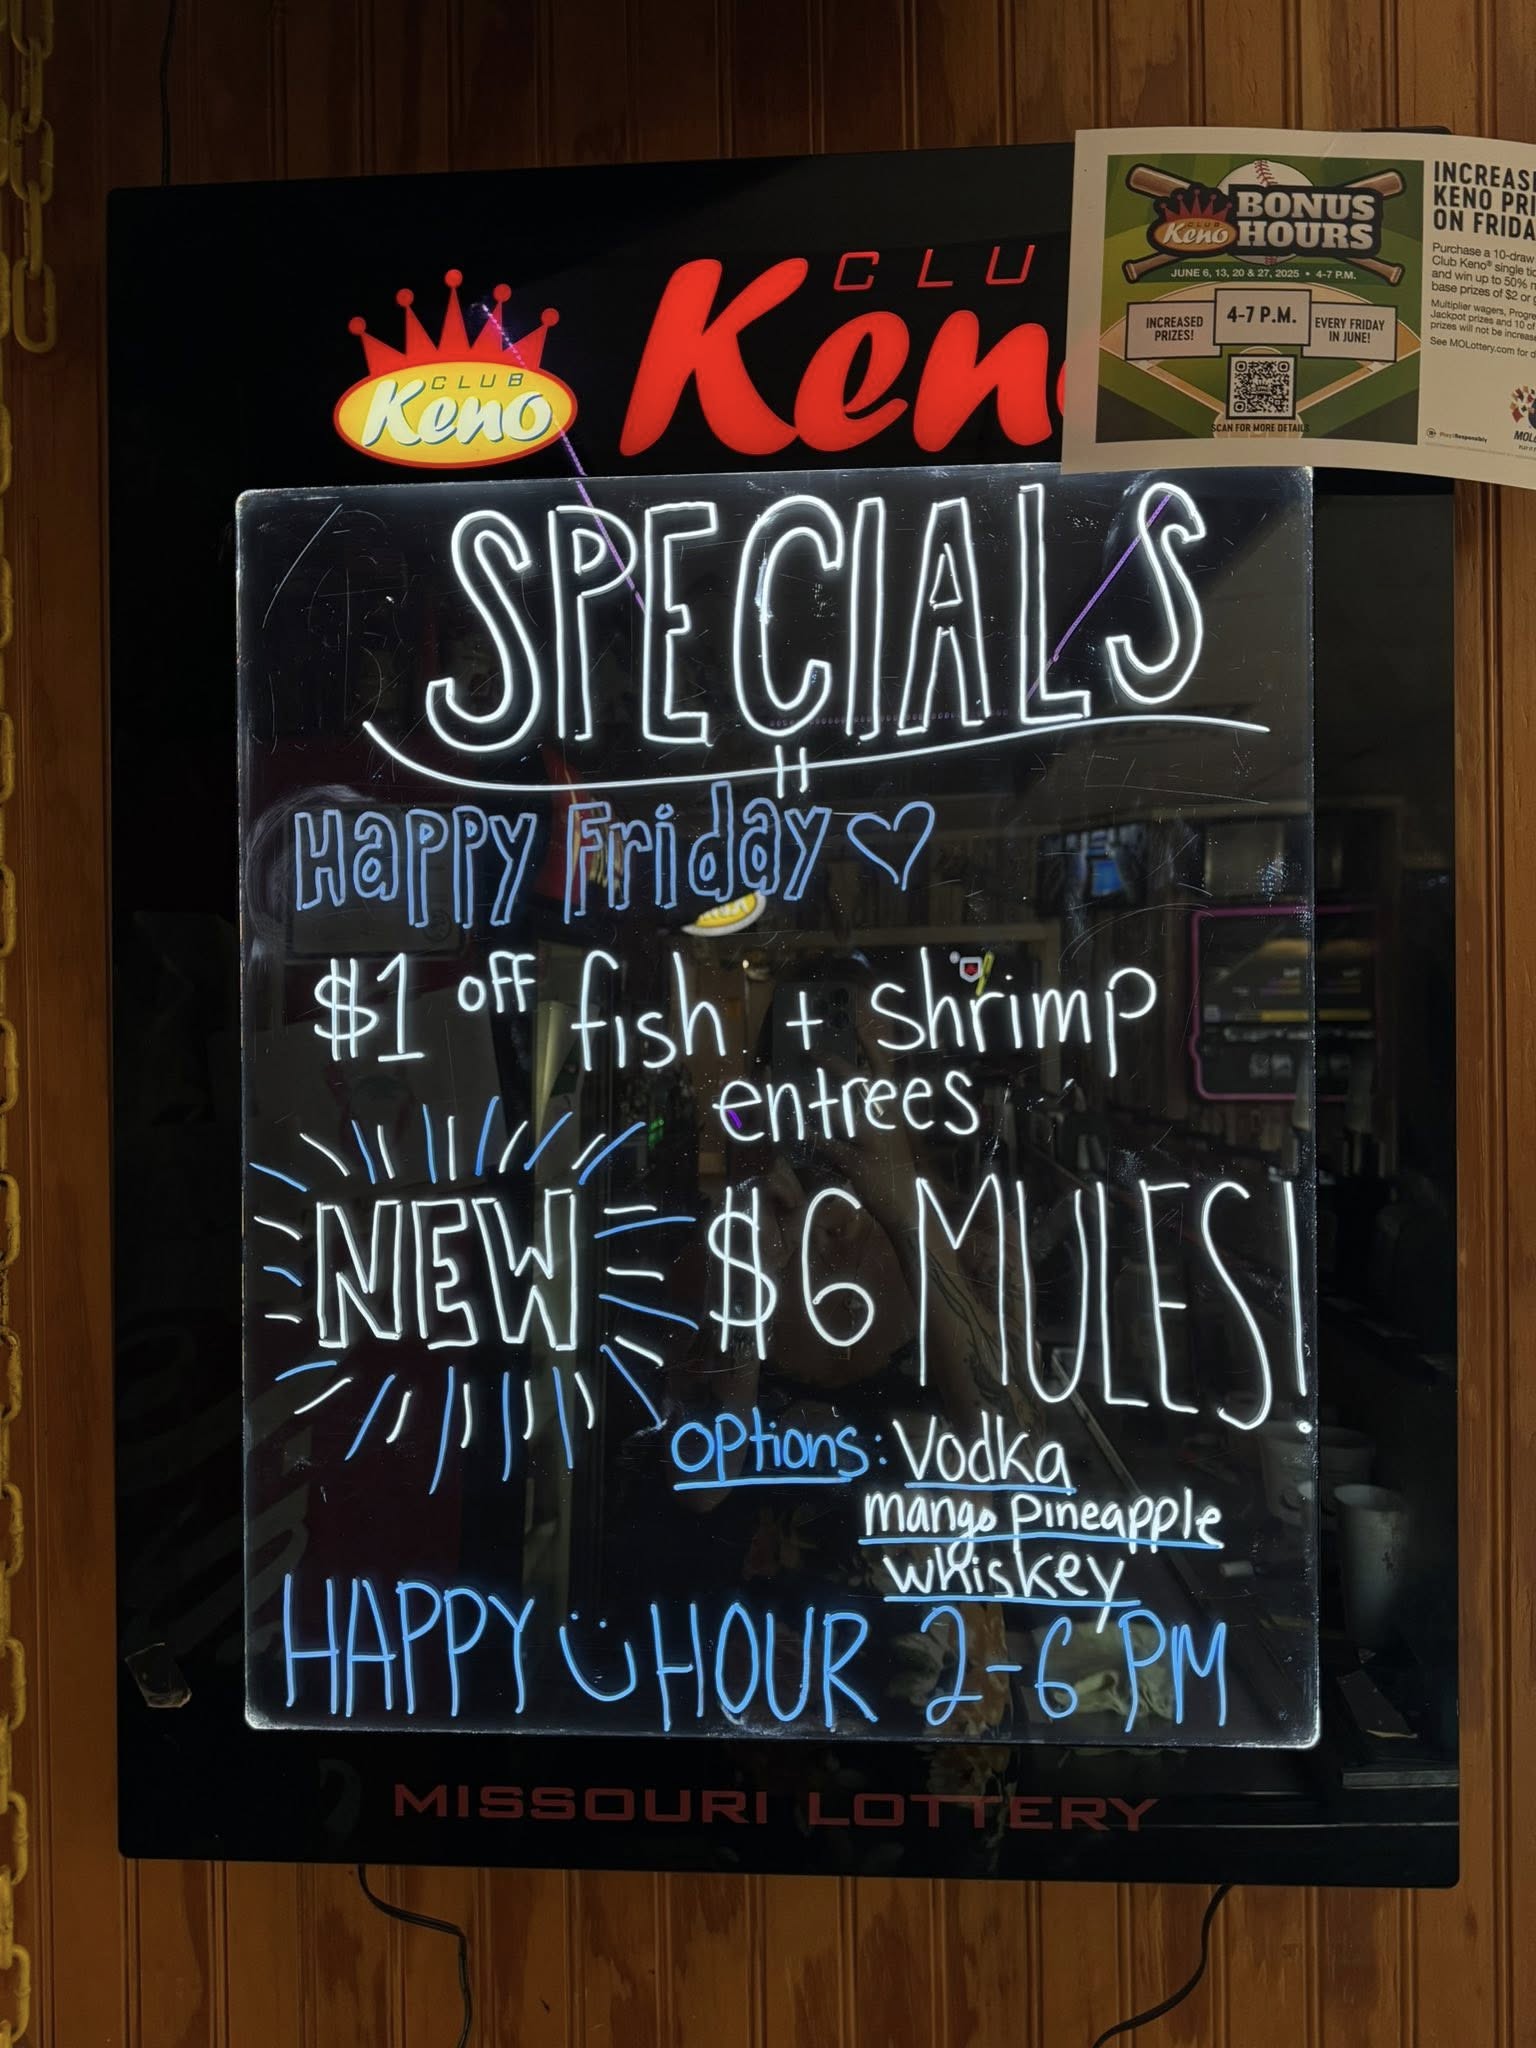 CLUB
Keno
CLU
Ken
SPECIALS
Happy Friday
$1 OFF fish + shrimp
entrees
NEW $6 MULES!
Options: Vodka
mango Pineapple
whiskey
HAPPY HOUR 2-6 PM
MISSOURI LOTTERY
CLUB
Keno
BONUS
HOURS
JUNE 6, 13, 20 & 27, 2025 • 4-7 P.M.
INCREASED
PRIZES!
4-7 P.M.
EVERY FRIDAY
IN JUNE!
SCAN FOR MORE DETAILS
INCREAS
KENO PRI
ON FRIDA
Purchase a 10-draw
Club Keno® single tic
and win up to 50% m
base prizes of $2 or g
Multiplier wagers, Progre
Jackpot prizes and 10 
prizes will not be increase
See MOLottery.com for d
Play Responsibly